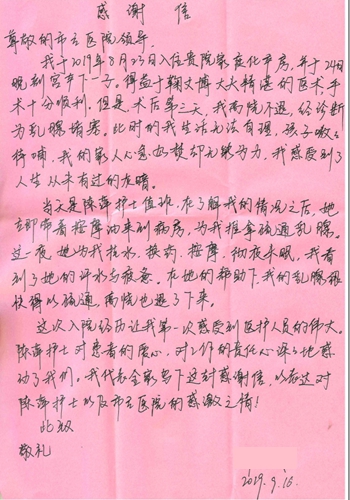 感谢信
尊敬的市立医院领导:
我于2019年8月23日入住贵院家庭化产房,并于24日
晚剖宫产下一子。得益于鞠文博大夫精湛的医术,手
术十分顺利。但是,术后第三天,我高烧不退,经诊断
为乳腺堵塞。此时的我生活无法自理,孩子嗷嗷
待哺,我的家人心急如焚却无能为力,我感受到了
人生从未有过的灰暗。
当天是陈萍护士值班,在了解我的情况之后,她
立即带着按摩油来到病房,为我推拿疏通乳腺。
这一夜,她为我挂水、换药、按摩,彻夜未眠,我看
到了她的汗水与疲惫。在她的帮助下,我的乳腺很
快得以疏通,高烧也退了下来。
这次入院经历让我第一次感受到医护人员的伟大。
陈萍护士对患者的爱心,对工作的责任心深深地感
动了我们。我代表全家写下这封感谢信,以表达对
陈萍护士以及市立医院的感激之情!
此致
敬礼
2019.9.16.